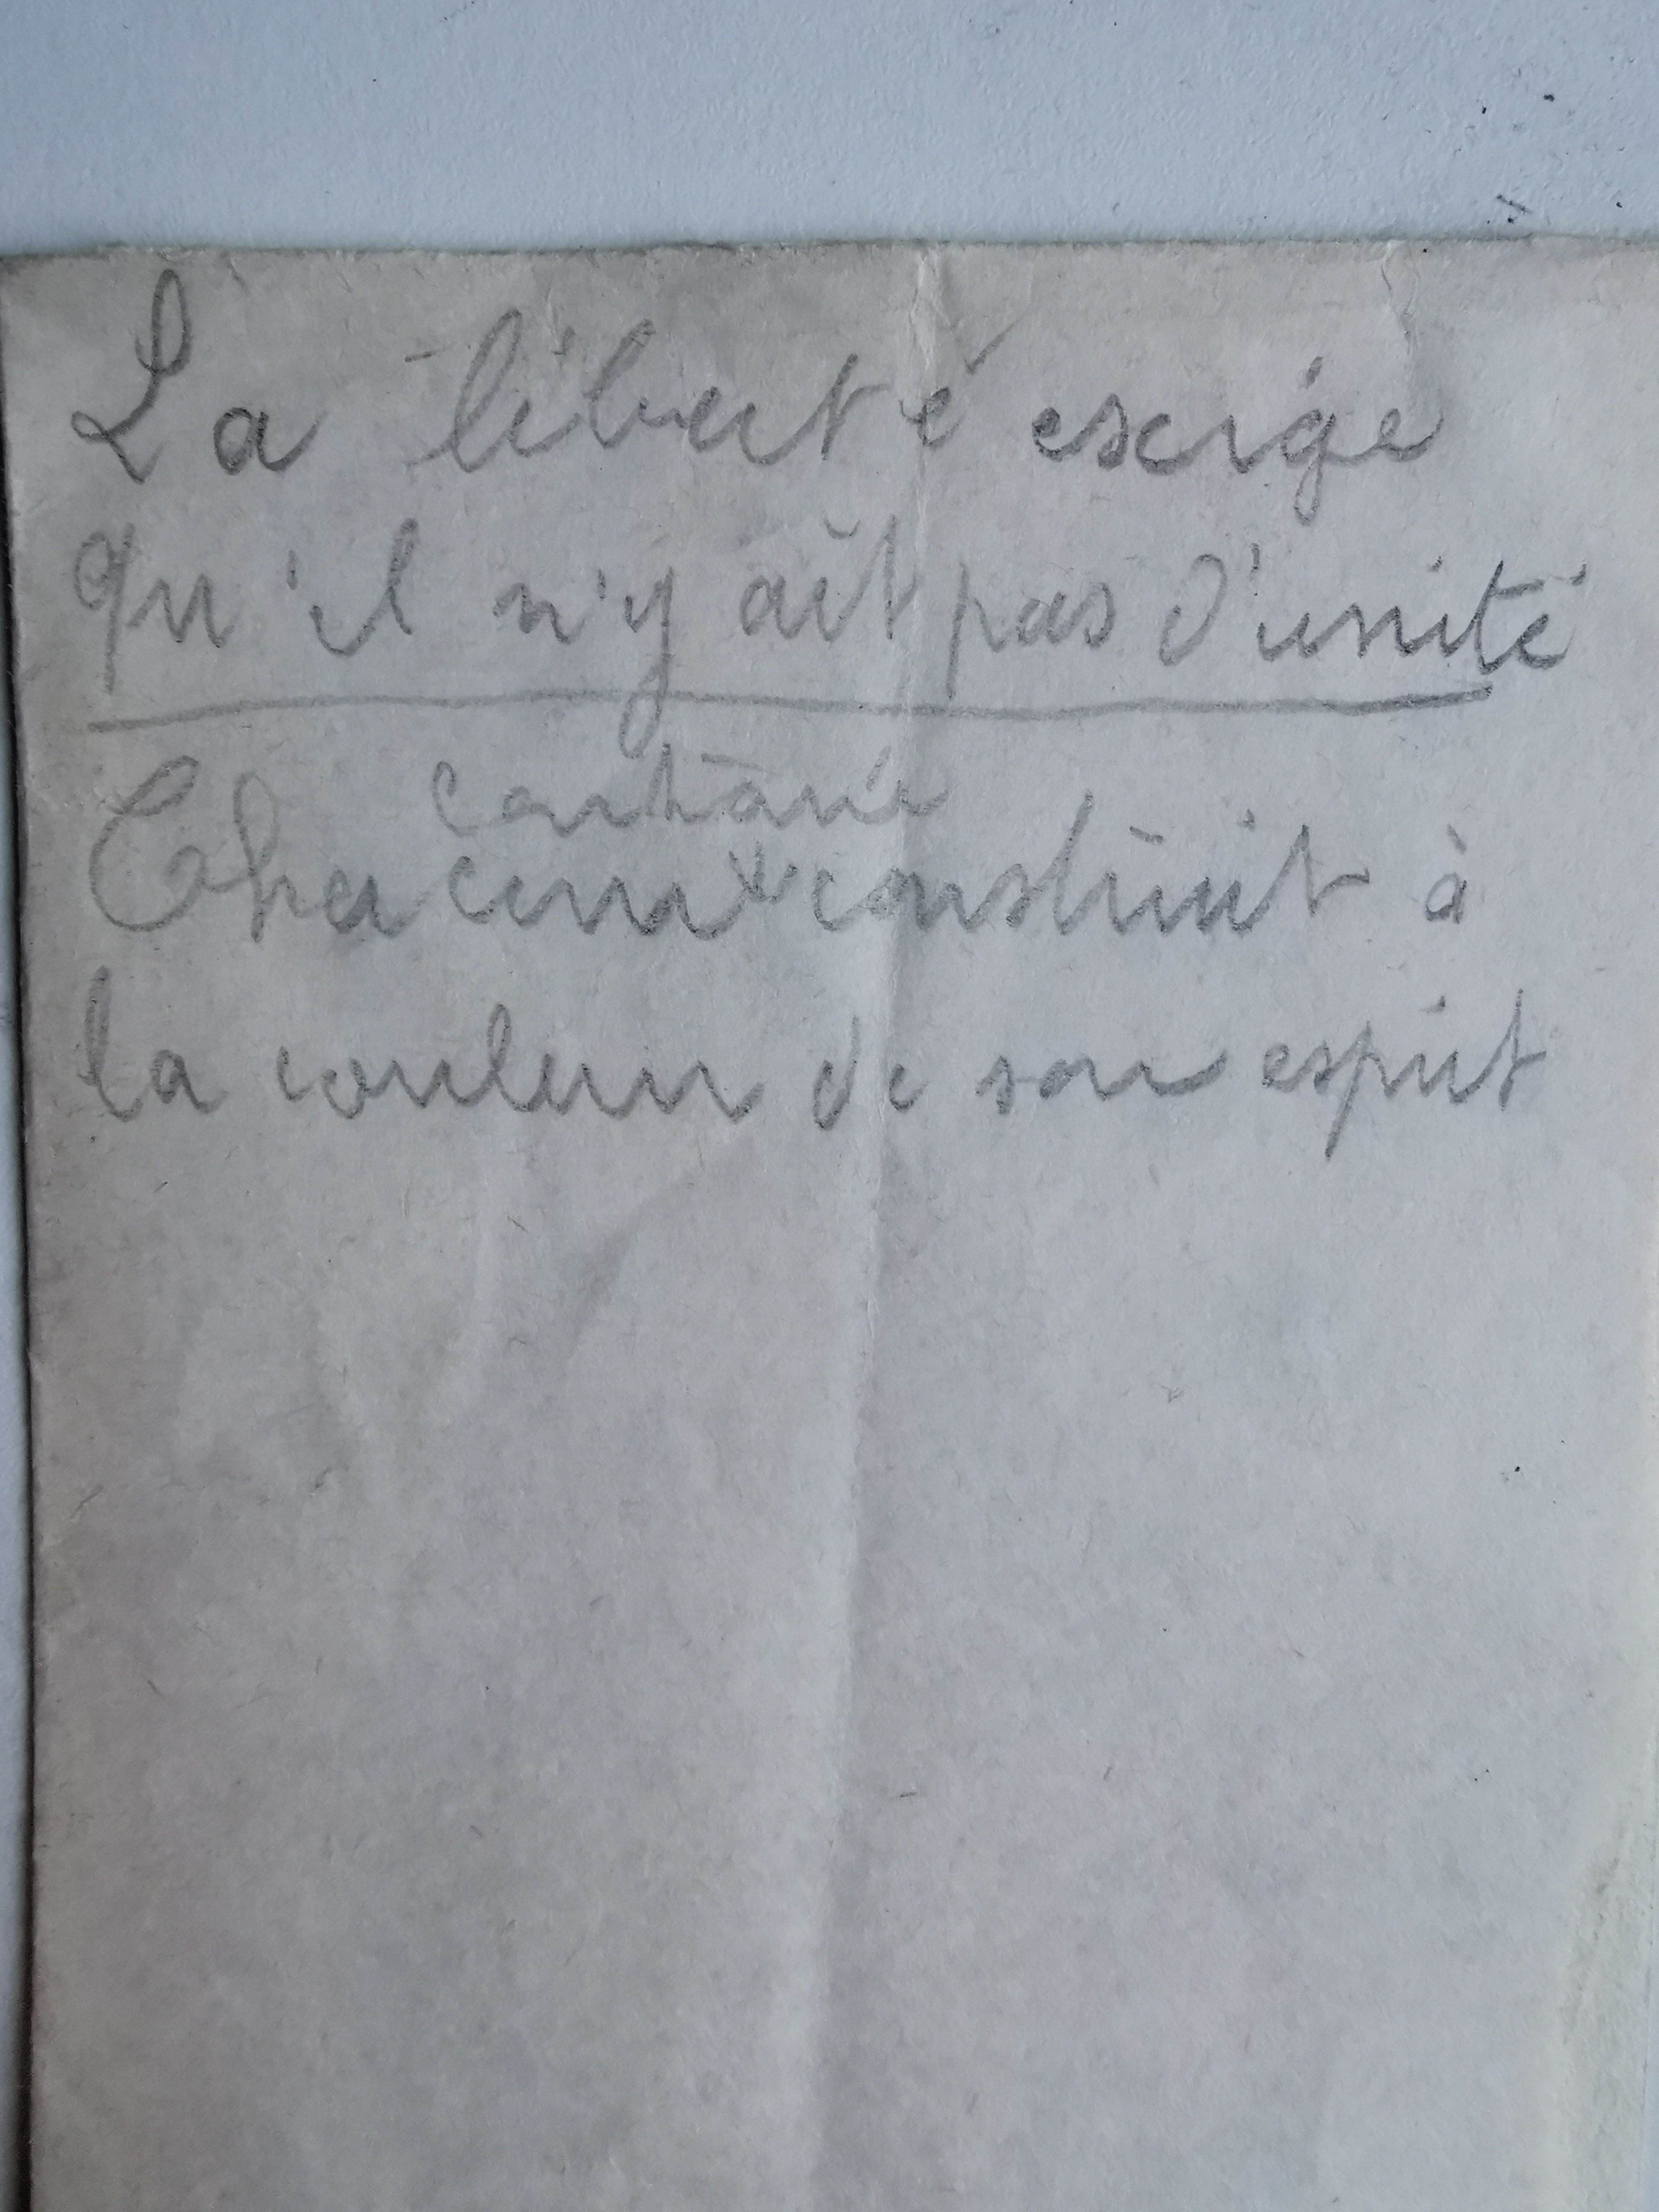 La liberté exige
qu'il n'y ait pas d'unité
contraire
Chacun construit à
la couleur de son esprit